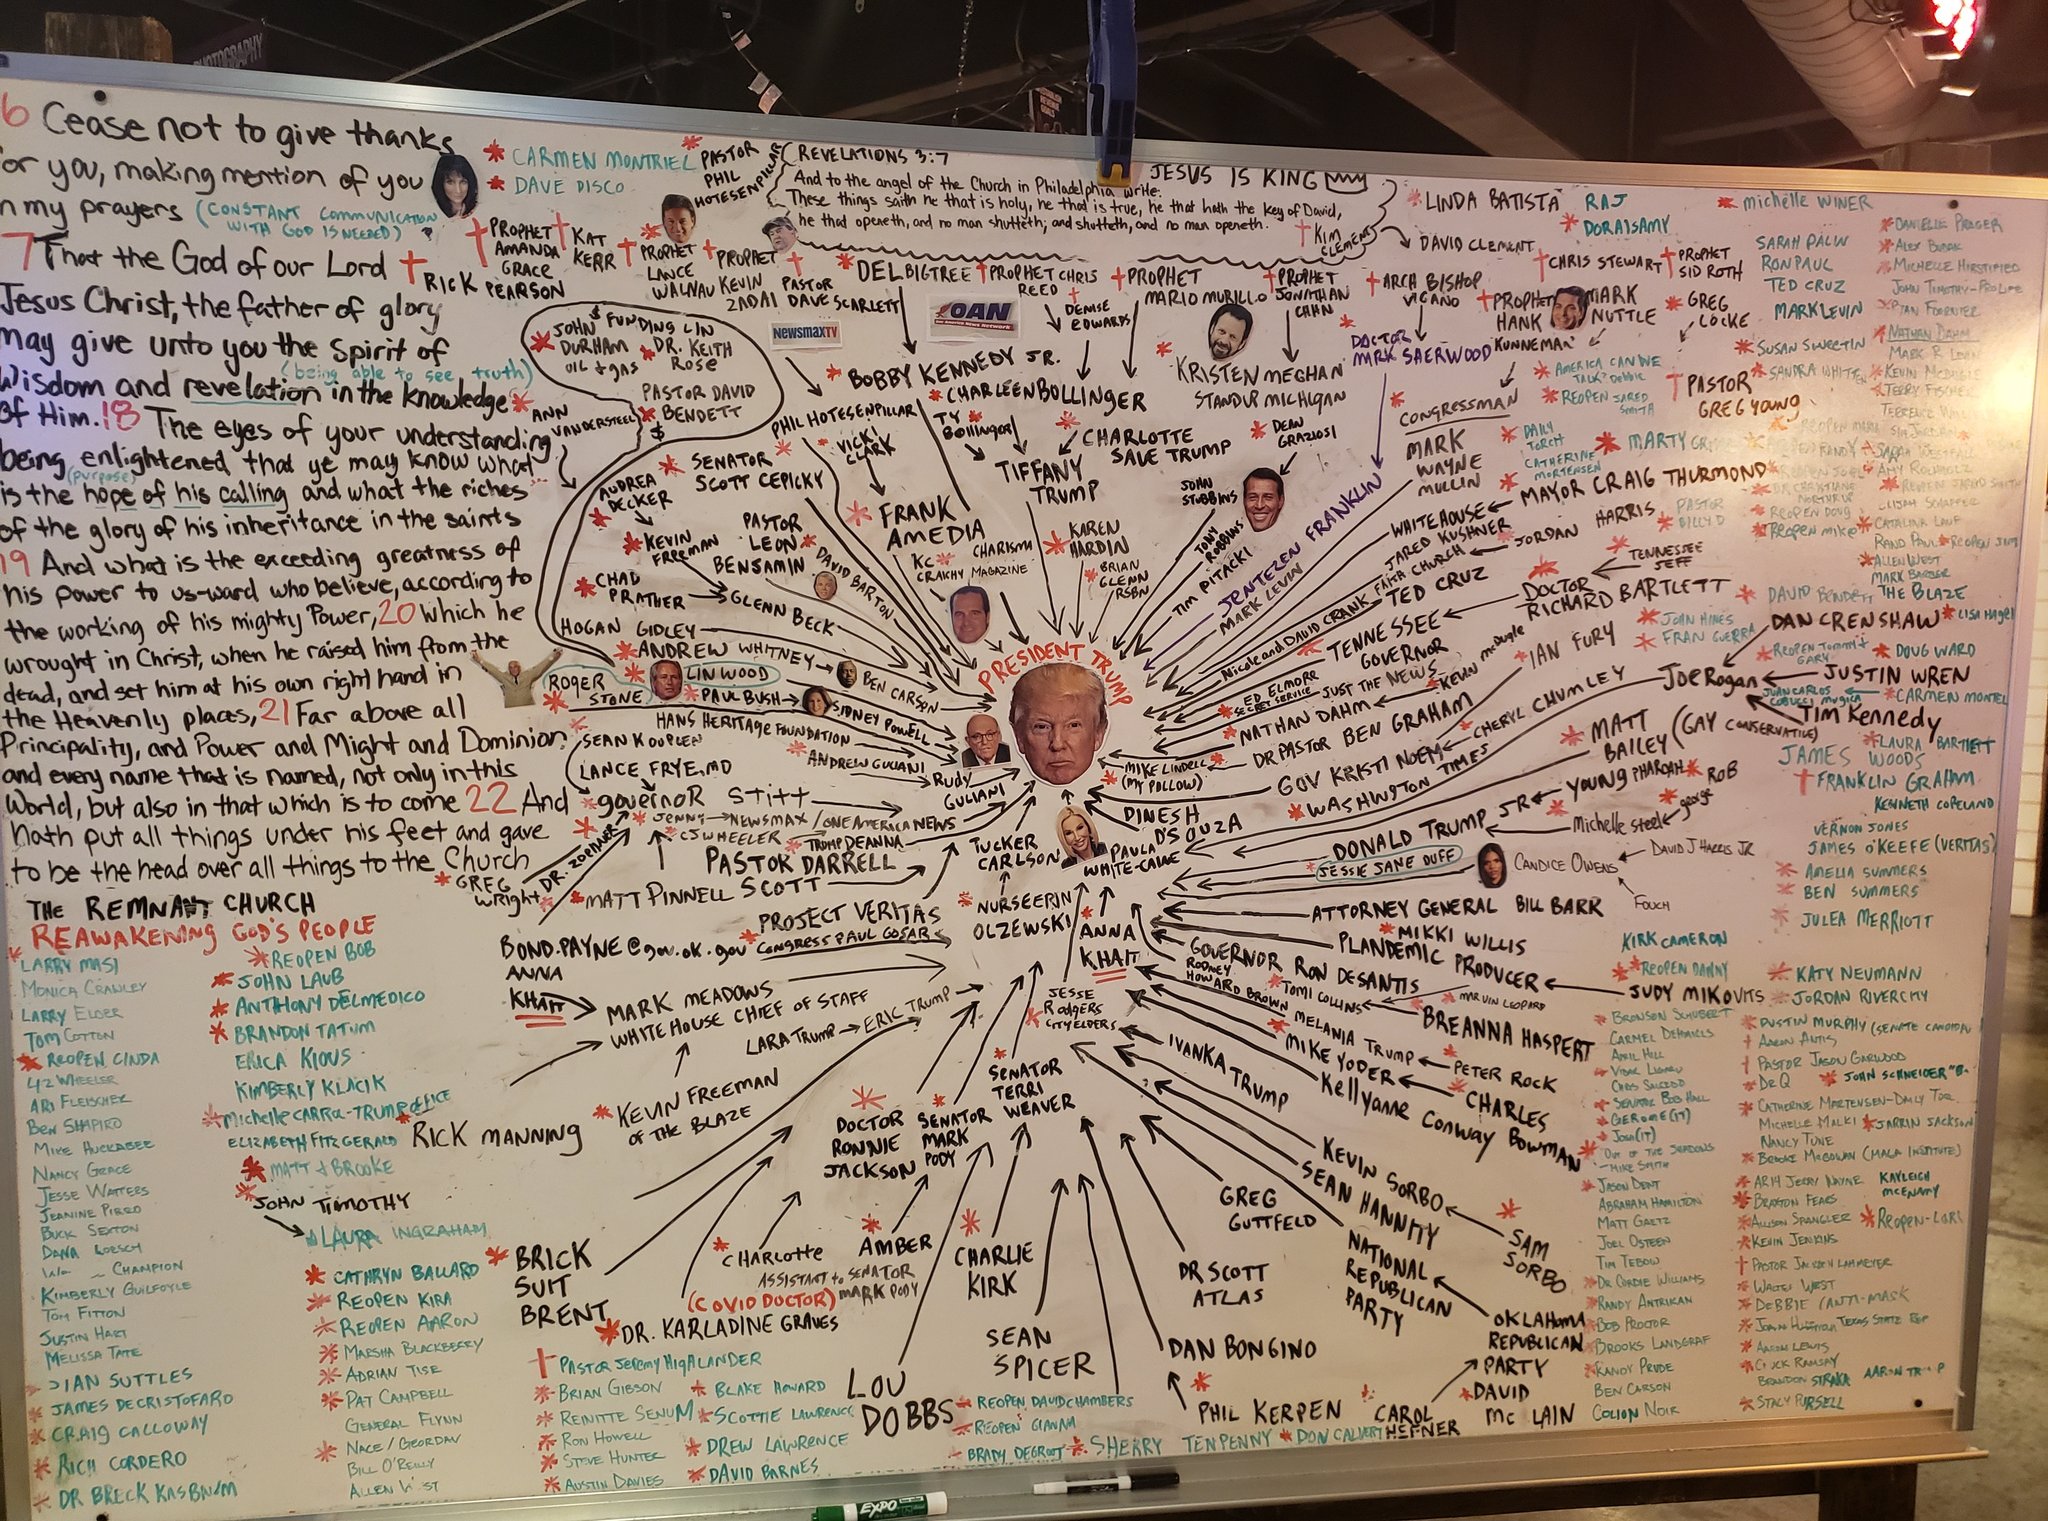 PHOTOGRAPHY
6 Cease not to give thanks
for you, making mention of you
in my prayers (CONSTANT COMMUNICATION
WITH GOD IS NEEDED)
7 That the God of our Lord
Jesus Christ, the father of glory
may give unto you the spirit of
(being able to see truth)
Wisdom and revelation in the knowledge
of Him. 18 The eyes of your understanding
being enlightened that ye may know what
(purpose)
is the hope of his calling and what the riches
of the glory of his inheritance in the saints
19 And what is the exceeding greatness of
his power to us-ward who believe, according to
the working of his mighty Power, 20 Which he
wrought in Christ, when he raised him from the
dead, and set him at his own right hand in
the Heavenly places, 21 Far above all
Principality, and Power and Might and Dominion
and every name that is named, not only in this
World, but also in that which is to come 22 And
hath put all things under his feet and gave
to be the head over all things to the Church
THE REMNANT CHURCH
REAWAKENING GOD'S PEOPLE
LARRY MASI
MONICA CRAWLEY
LARRY ELDER
TOM COTTON
REOPEN CINDA
LIZ WHEELER
ARI FLEISCHER
BEN SHAPIRO
MIKE HUCKABEE
NANCY GRACE
JESSE WATTERS
JEANINE PIRRO
BUCK SEXTON
DANA LOESCH
CHAMPION
KIMBERLY GUILFOYLE
TOM FITTON
JUSTIN HART
MELISSA TATE
SUTTLES
JAMES DECRISTOFARO
CRAIG CALLOWAY
RICH CORDERO
DR BRECK
REOPEN BOB
JOHN LAUB
ANTHONY DELMEDICO
BRANDON TATUM
ERICA KIOUS
KIMBERLY KLACIK
MICHELLE CARRA-TRUMP OFFICE
ELIZABETH FITZGERALD
MATT + BROOKE
JOHN TIMOTHY
LAURA INGRAHAM
CATHRYN BALLARD
REOPEN KIRA
REOPEN AARON
MARSHA BLACKBERRY
ADRIAN TISE
PAT CAMPBELL
GENERAL FLYNN
NACE/GEORDAV
BILL O'REILLY
ALLEN WEST
CARMEN MONTRIEL
DAVE DISCO
PASTOR
PHIL
HOTESENPILLAR
REVELATIONS 3:7
And to the angel of the Church in Philadelphia write:
These things saith he that is holy, he that is true, he that hath the key of David,
he that openeth, and no man shutteth; and shutteth, and no man openeth.
JESUS IS KING
KIM
CLEMENT
DAVID CLEMENT
LINDA BATISTA
RAJ
DORAISAMY
michelle WINER
RICK PEARSON
PROPHET
AMANDA
GRACE
KAT
KERR
PROPHET
LANCE
WALNAU
PROPHET
KEVIN
ZADAI
PASTOR
DAVE SCARLETT
DEL BIGTREE
PROPHET CHRIS
REED
DENISE
EDWARDS
PROPHET
MARIO MURILLO
PROPHET
JONATHAN
CAHN
ARCH BISHOP
VIGANO
CHRIS STEWART
PROPHET
SID ROTH
PROPHET
HANK
KUNNEMAN
MARK
NUTTLE
GREG
LOCKE
SARAH PALIN
RON PAUL
TED CRUZ
MARK LEVIN
SUSAN SWEETIN
SANDRA WHITTEN
DANIELLE PRAGER
JOHN TIMOTHY-PROLIFE
RYAN FOURNIER
NATHAN DAHM
MARK R LEVIN
TERRY FISCHER
$ FUNDING LIN
JOHN
DURHAM
OIL + GAS
DR. KEITH
ROSE
PASTOR DAVID
BENDETT
$
NEWSMAXTV
OAN
One America News Network
ANN
VANDERSTEEL
BOBBY KENNEDY JR.
CHARLEEN BOLLINGER
TY
BOLLINGER
PHIL HOTESENPILLAR
VICKI
CLARK
CHARLOTTE
SAVE TRUMP
TIFFANY
TRUMP
KRISTEN MEGHAN
STANDUP MICHIGAN
DEAN
GRAZIOSI
DOCTOR
MARK SHERWOOD
AMERICA CAN WE
TALK? Debbie
REOPEN JARED
SMITH
PASTOR
GREG YOUNG
CONGRESSMAN
MARK
WAYNE
MULLIN
DAILY
TORCH
CATHERINE
MORTENSEN
MAYOR CRAIG THURMOND
AUDREA
DECKER
SENATOR
SCOTT CEPICKY
KEVIN
FREEMAN
PASTOR
LEON
BENJAMIN
DAVID BARTON
FRANK
AMEDIA
KC
CRAICHY
CHARISMA
MAGAZINE
KAREN
HARDIN
BRIAN
GLENN
RSBN
JOHN
STUBBINS
TONY
ROBBINS
TIM PITACKI
JENTEZEN FRANKLIN
MARK LEVIN
WHITEHOUSE
JARED KUSHNER
FAITH CHURCH
JORDAN HARRIS
PASTOR
BILLY D
REOPEN DOUG
REOPEN MIKE
RAND PAUL
REOPEN JIM
ALLEN WEST
MARK BARBER
THE BLAZE
CHAD
PRATHER
GLENN BECK
HOGAN GIDLEY
ANDREW WHITNEY
BEN CARSON
ROGER
STONE
LIN WOOD
PAUL BUSH
SIDNEY POWELL
HANS HERITAGE FOUNDATION
ANDREW GULIANI
RUDY
GULIANI
PRESIDENT TRUMP
Nicole and DAVID CRANK
TED CRUZ
TENNESSEE
GOVERNOR
DOCTOR
RICHARD BARTLETT
TENNESSEE
JEFF
ED ELMORE
SECRET SERVICE
JUST THE NEWS
KEVIN McDUGLE
IAN FURY
NATHAN DAHM
DR PASTOR BEN GRAHAM
CHERYL CHUMLEY
MIKE LINDELL
(MY PILLOW)
GOV KRISTI NOEM
WASHINGTON TIMES
JOHN HINES
FRAN GUERRA
DAVID BENDETT
DAN CRENSHAW
LISA HAGEL
REOPEN TOMMY +
GARY
DOUG WARD
JOE ROGAN
JUSTIN WREN
JUAN CARLOS
CARMEN MONTEL
TIM KENNEDY
MATT
BAILEY (GAY CONSERVATIVE)
JAMES WOODS
LAURA BARTLETT
FRANKLIN GRAHAM
KENNETH COPELAND
VERNON JONES
JAMES O'KEEFE (VERITAS)
AMELIA SUMMERS
BEN SUMMERS
JULEA MERRIOTT
SEAN KOUPLEN
LANCE FRYE, MD
GOVERNOR STITT
JENNY
NEWSMAX / ONE AMERICA NEWS
CJ WHEELER
TRUMP DEANNA
PASTOR DARRELL
SCOTT
GREG
WRIGHT
DR. ZOELLNER
MATT PINNELL
TUCKER
CARLSON
PAULA
WHITE-CAINE
DINESH
D'SOUZA
YOUNG PHAROAH
ROB
GEORGE
DONALD TRUMP JR
MICHELLE STEEL
JESSIE JANE DUFF
CANDICE OWENS
DAVID J HARRIS JR
FOUCH
ATTORNEY GENERAL BILL BARR
PROJECT VERITAS
CONGRESS PAUL GOSAR
NURSE ERIN
OLZEWSKI
ANNA
KHAIT
BOND.PAYNE@gov.ok.gov
ANNA
KHAIT
MARK MEADOWS
WHITE HOUSE CHIEF OF STAFF
LARA TRUMP
ERIC TRUMP
MIKKI WILLIS
PLANDEMIC PRODUCER
JUDY MIKOVITS
GOVERNOR RON DESANTIS
RODNEY
HOWARD BROWN
TOMI COLLINS
MARVIN LEOPARD
BREANNA HASPERT
MELANIA TRUMP
PETER ROCK
MIKE YODER
CHARLES
BOWMAN
KELLYANNE CONWAY
JESSE
RODGERS
CITY ELDERS
IVANKA TRUMP
KEVIN FREEMAN
OF THE BLAZE
RICK MANNING
DOCTOR
RONNIE
JACKSON
SENATOR
MARK
PODY
SENATOR
TERRI
WEAVER
BRICK
SUIT
BRENT
CHARLOTTE
ASSISTANT to SENATOR
MARK PODY
AMBER
CHARLIE
KIRK
(COVID DOCTOR)
DR. KARLADINE GRAVES
SEAN
SPICER
LOU
DOBBS
GREG
GUTTFELD
DR SCOTT
ATLAS
DAN BONGINO
PHIL KERPEN
KEVIN SORBO
SEAN HANNITY
SAM
SORBO
NATIONAL
REPUBLICAN
PARTY
OKLAHOMA
REPUBLICAN
PARTY
CAROL
HEFNER
DAVID
MC LAIN
PASTOR JEREMY HIGHLANDER
BRIAN GIBSON
REINITTE SENUM
RON HOWELL
STEVE HUNTER
AUSTIN DAVIES
BLAKE HOWARD
SCOTTIE LAWRENCE
DREW LAWRENCE
DAVID BARNES
REOPEN DAVID CHAMBERS
REOPEN GIANNA
BRADY DEGROOT
SHERRY TENPENNY
DON CALVERT
KIRK CAMERON
REOPEN DANNY
BRONSON SCHUBERT
APRIL HILL
SENATOR BOB HALL
GEROME (IT)
JOSH (IT)
OUT OF THE SHADOWS
- MIKE SMITH
JASON DENT
ABRAHAM HAMILTON
MATT GAETZ
JOEL OSTEEN
TIM TEBOW
DR CORDIE WILLIAMS
RANDY ANTRIKAN
BOB PROCTOR
BROOKS LANDGRAF
RANDY PRUDE
BEN CARSON
COLION NOIR
KATY NEUMANN
JORDAN RIVERCITY
DUSTIN MURPHY (SENATE CANDIDA
AARON ANTIS
PASTOR JASON GARWOOD
DR Q
JOHN SCHNEIDER
CATHERINE MORTENSEN-DAILY TOR
MICHELLE MALKI
JARRIN JACKSON
NANCY TUNE
BROOKE McGOWAN (MAGA INSTITUTE)
ARCH JERRY WAYNE
KAYLEIGH
McENANY
BRAXTON FEARS
ALLISON SPANGLER
REOPEN-LORI
KEVIN JENKINS
PASTOR JACKSON LAHMEYER
WALTER WEST
DEBBIE (ANTI-MASK
TEXAS STATE REP
AARON LEWIS
CHUCK RAMSAY
BRANDON STRAKA
STACY PURSELL
EXPO